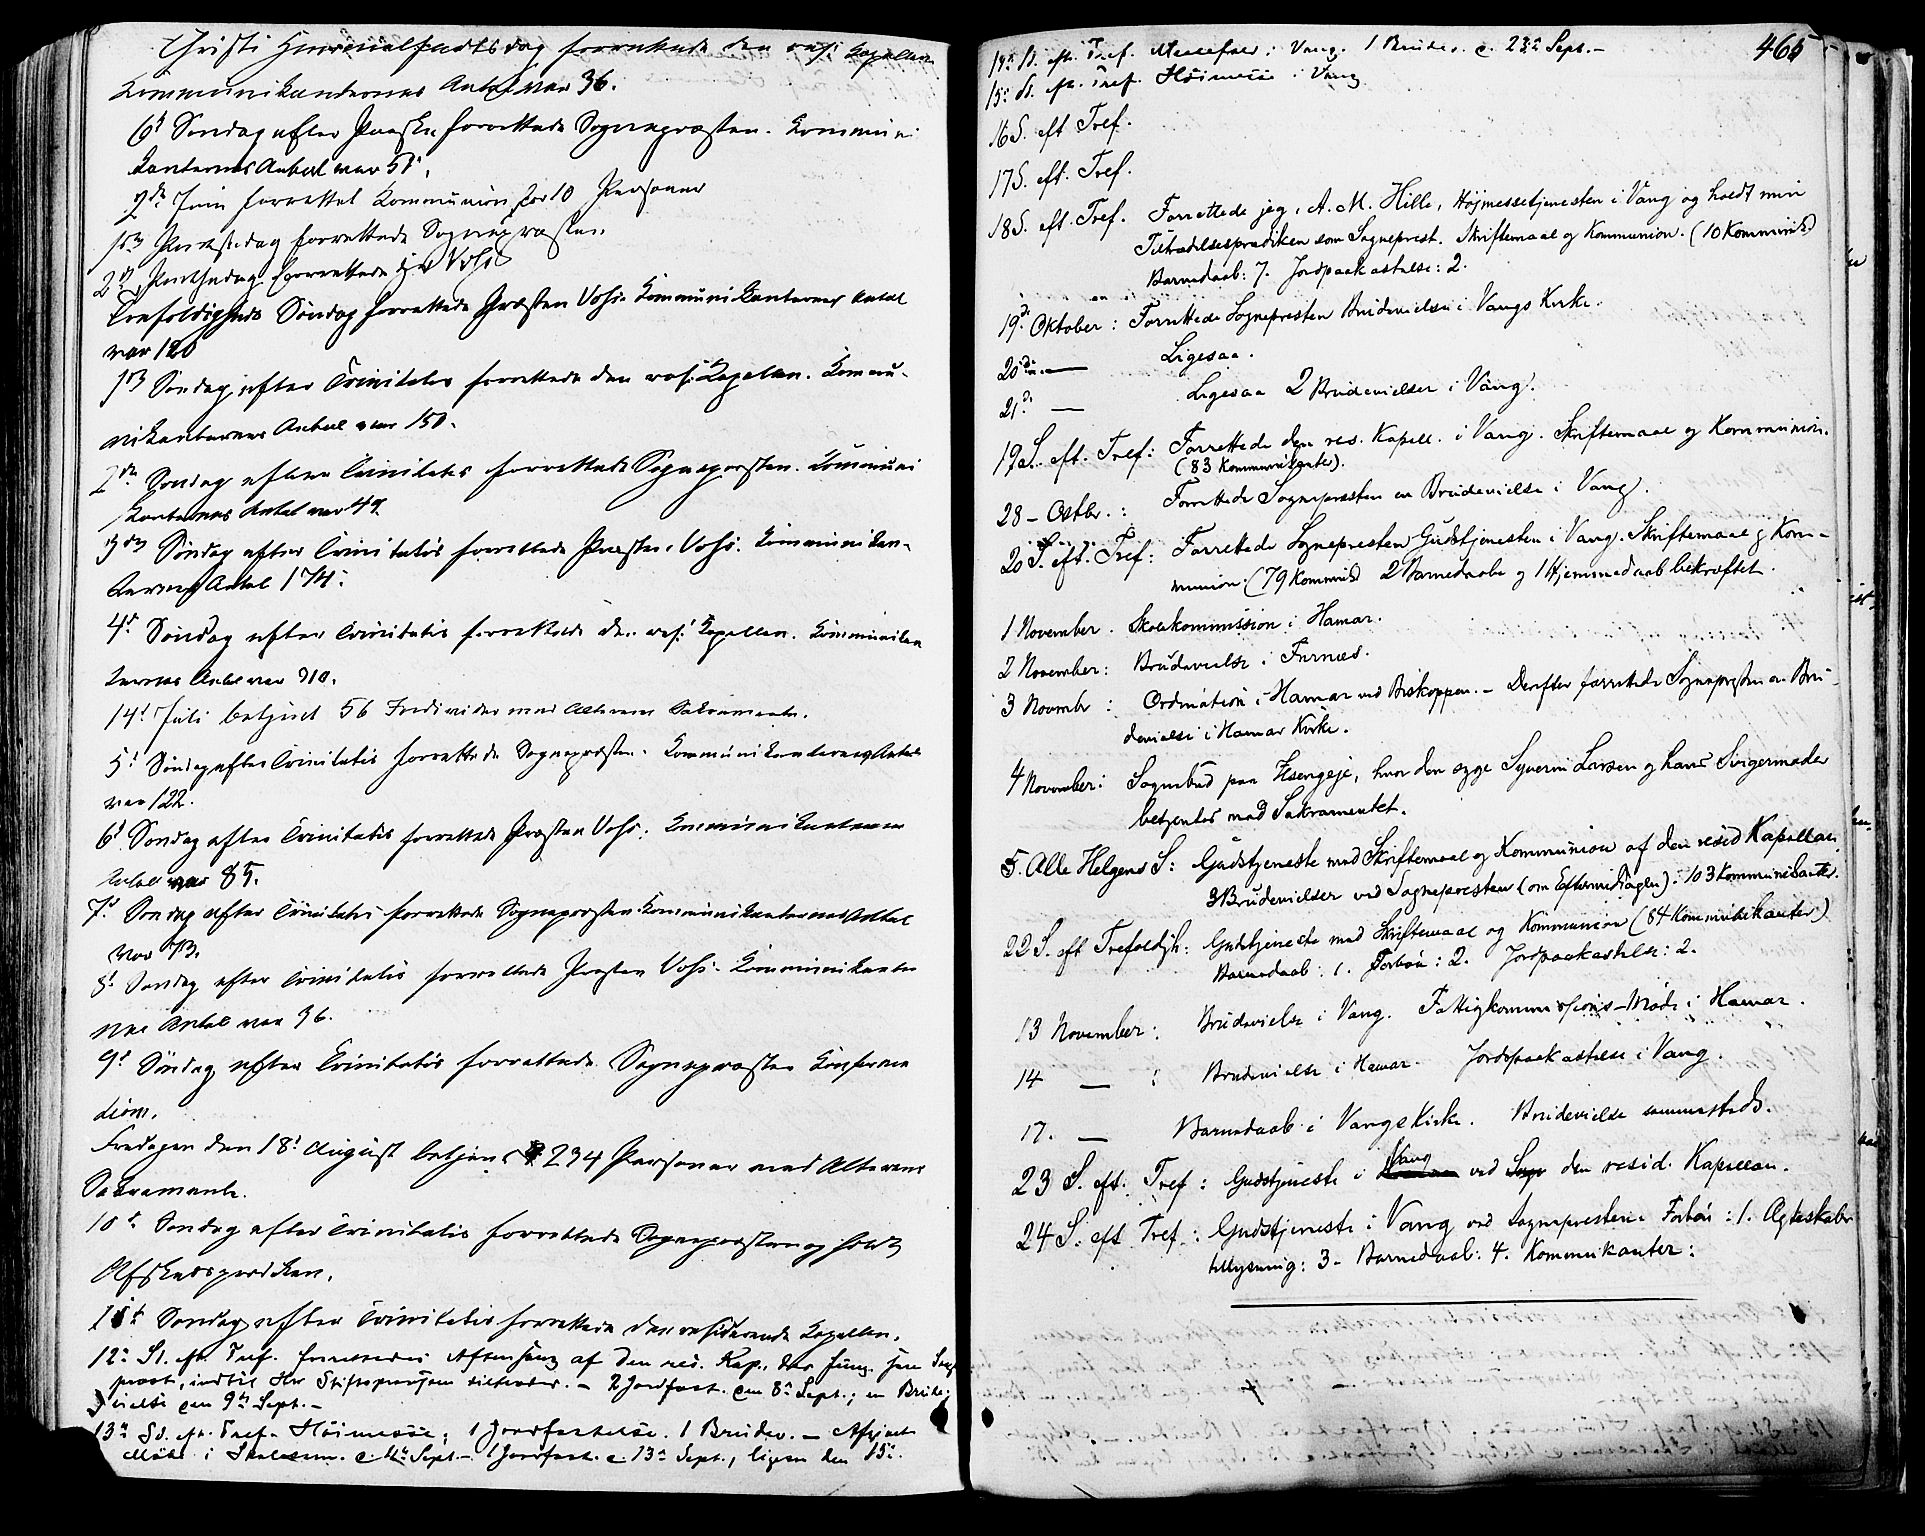 Christi Himmelfartsdag forrettede den resi. Kapellan
Kommunikanternes Antal var 36.
6t Søndag efter Paaske forrettede Sognepræsten. Kommuni
kanternes Antal var 51.
2den Juni forrettet Kommunion for 10 Personer
1ste Pintsedag forrettede Sognepræsten.
2d Pintsedag forrettede Voss
Trefoldigheds Søndag forrettede Præsten Voss. Kommunikanternes Antal
var 120
1ste Søndag efter Trinitatis forrettede den resi. Kapellan. Kommu-
nikanternes Antal var 150.
2den Søndag efter Trinitatis forrettede Sognepræsten. Kommuni
kanternes Antal var 49
3die Søndag efter Trinitatis forrettede Præsten Voss. Kommunikan-
ternes Antal 174.
4d Søndag efter Trinitatis forrettede den resi. Kapellan. Kommunikan
ternes Antal var 310.
14d Juli betjent 56 Individer med Alterens Sakramente.
5t Søndag efter Trinitatis forrettede Sognepræsten. Kommunikanternes Antal
var 122.
6t Søndag efter Trinitatis forrettede Præsten Voss. Kommunikanternes
Antal var 85.
7d Søndag efter Trinitatis forrettede Sognepræsten. Kommunikanternes Antal
var 73.
8d Søndag efter Trinitatis forrettede Præsten Voss. Kommunikanter
nes Antal var 36.
9d Søndag efter Trinitatis forrettede Sognepræsten Konfirma
tion.
Fredagen den 18d August betjent 234 Personer med Alterens
Sakramente.
10d Søndag efter Trinitatis forrettede Sognepræsten og holdt
Afskedsprædiken.
11te Søndag efter Trinitatis forrettede den residerende Kapellan.
12te S. eft. Tref. forrettedes Aftensang af den res. Kap., der fung. som Sogne
præst, indtil Hr Stiftsprovsten tiltræder. – 2 Jordfæst. den 8de Sept.; en Brude-
vielse den 9de Sept. –
13de Sd. eft. Tref. Høimesse; 1 Jordfæstelse. 1 Brudev. –
Møde i Sept. – 1 Jordfæst. d. 13de Sept., ligesaa den 15de.
465
14de S. eft. Tref. Messefald i Vang. 1 Brudev. d. 23de Sept. –
15de S. eft. Tref. Høimesse i Vang
16 S. eft Tref.
17 S. eft. Tref.
18 S. eft. Tref. Forrettede jeg, A. M. Hille, Højmessetjenesten i Vang og holdt min
Tiltrædelsesprædiken som Sogneprest. Skriftemaal og Kommunion. (10 Kommunik.)
Barnedaab: 7. Jordpaakastelse: 2.
19de Oktober: Forrettede Sognepresten en Brudevielse i Vangs Kirke.
20de — Ligesaa.
21de — Ligesaa 2 Brudevielser i Vang.
19 S. eft. Tref: Forrettede den res. Kapell. i Vang. Skriftemaal og Kommunion.
(83 Kommunikanter).
28 – Octbr.: Forrettede Sognepræsten en Brudevielse i Vang.
20 S. eft. Tref: Forrettede Sognepresten Gudstjenesten i Vang. Skriftemaal og Kom-
munion. (79 Kommunik) 2 Barnedaabe og 1 Hjemmedaab bekræftet.
1 November. Skolekommission i Hamar.
2 November: Brudevielse i Furnæs.
3 Novembr: Ordination i Hamar ved Biskoppen. – Derefter forrettede Sognepresten en Bru-
devielse i Hamar Kirke.
4 November: Sognebud paa Hsengeje, hvor den syge Syverin Larsen og hans Svigermoder
betjentes med Sakramentet.
5. Alle Helgens S: Gudstjeneste med Skriftemaal og Kommunion af den resid Kapellan.
3 Brudevielser ved Sognepresten (om Eftermiddagen). 103 Kommunikanter.
22 S. eft Trefoldigh: Gudstjeneste med Skriftemaal og Kommunion (84 Kommunikanter)
Barnedaab: 1. Forbøn: 2. Jordpaakastelse: 2.
13 November: Brudevielse i Vang. Fattigkommissions-Møde i Hamar.
14 — : Brudevielse i Hamar. Jordspaakastelse i Vang.
17. — Barnedaab i Vangs Kirke. Brudevielse sammesteds.
23 S. eft. Tref: Gudstjeneste i Vang ved den resid. Kapellan.
24 S. eft Tref.: Gudstjeneste i Vang ved Sognepresten. Forbøn: 1. Ægteskabs
tillysning: 3. Barnedaab: 4. Kommunikanter: